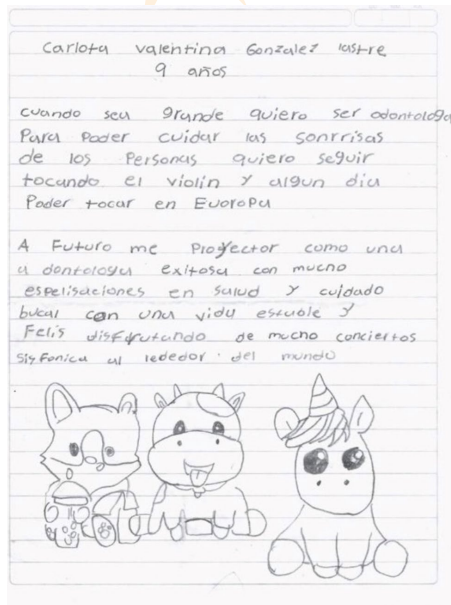 Carlota Valentina Gonzalez lastre
9 años
cuando sea grande quiero ser odontologa
Para Poder cuidar las sonrrisas
de los Personas quiero seguir
tocando el violin y algun dia
Poder tocar en Euoropa
A Futuro me Proyector como una
a dontologa exitosa con mucho
espelisaciones en salud y cuidado
bucal con una vida estable y
Felis disfrutando de mucho conciertos
sisfonica al lededor del mundo